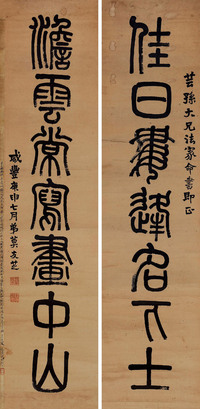 芸孫大兄法家命書即正
佳日逢名下士
澹雲常寫畫中山
咸豐庚申七月弟莫友芝